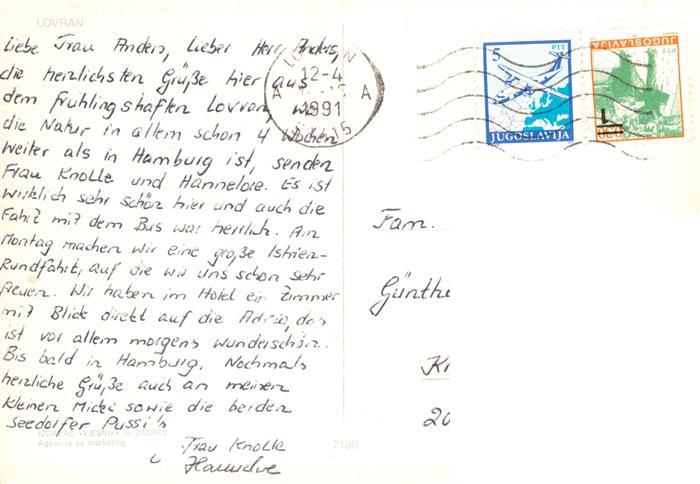 LOVRAN
Liebe Frau Anders, Lieber Herr Anders,
die herzlichsten Grüße hier aus
dem frühlingshaften Lovran, wo
die Natur in allem schon 4 Wochen
weiter als in Hamburg ist, senden
Frau Knolle und Hannelore. Es ist
wirklich sehr schön hier und auch die
Fahrt mit dem Bus war herrlich. Am
Montag machen wir eine große Istrien-
Rundfahrt, auf die wir uns schon sehr
freuen. Wir haben im Hotel ein Zimmer
mit Blick direkt auf die Adria, das
ist vor allem morgens wunderschön.
Bis bald in Hamburg. Nochmals
herzliche Grüße auch an meinen
kleinen Micki sowie die beiden
Seedorfer Pussi's
Frau Knolle
Hannelore
IZDAVAČ »VJESNIK« — ZAGREB
Agencija za marketing
7130
12-4
1991
A
A
5
PTT
JUGOSLAVIJA
JUGOSLAVIJA
PTT
1
0.30
Fam.
Günthe
K
20